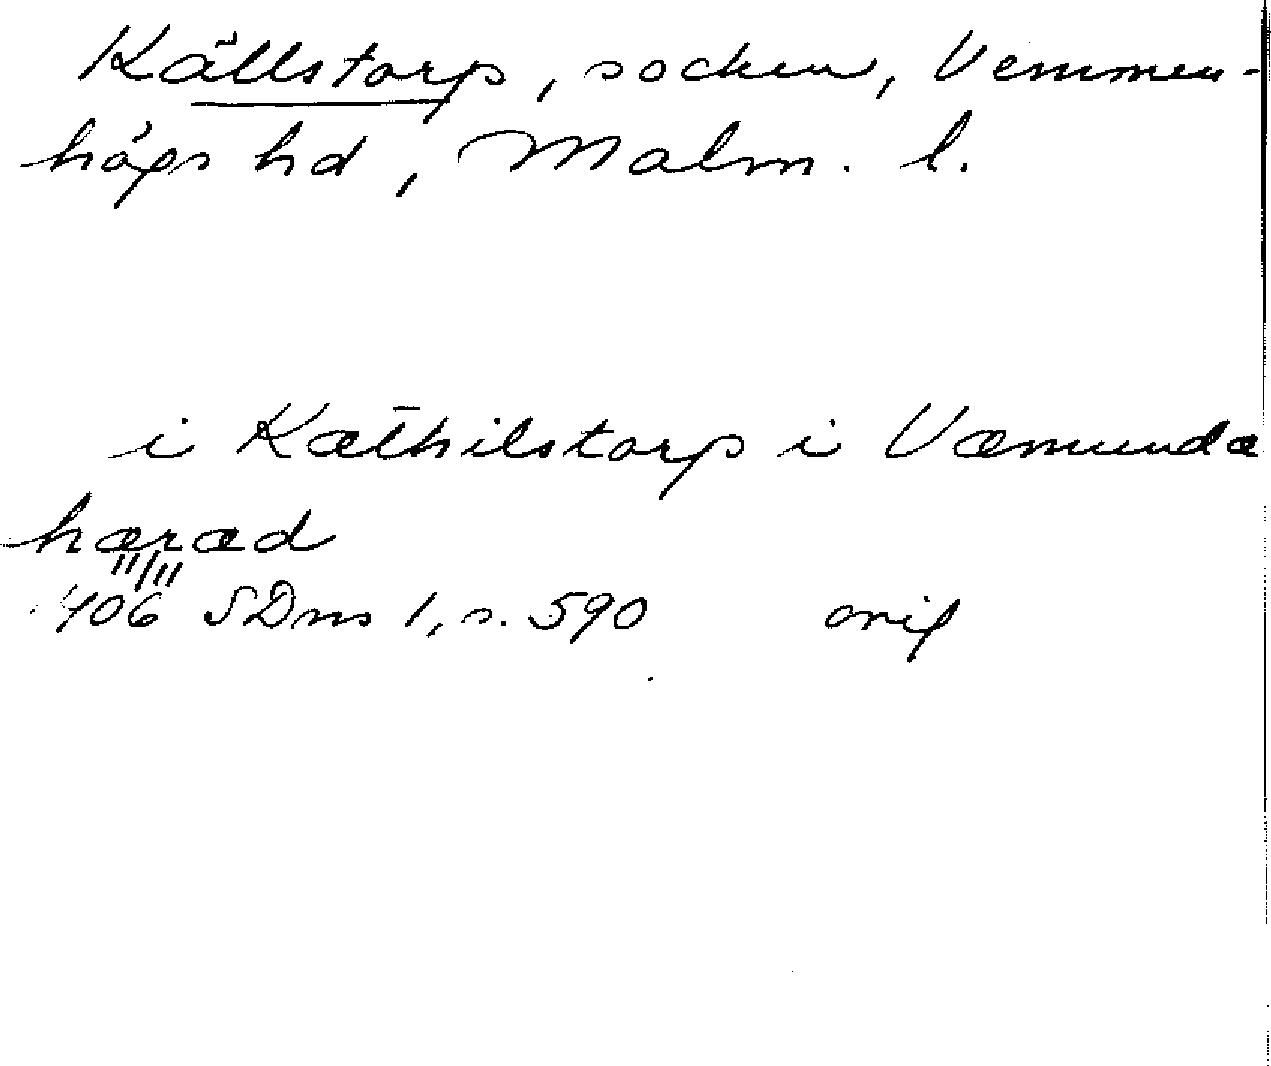 Källstorp, socken, Vemmen-
högs hd, Malm. l.
i Kæthilstorp i Væmunda
hæræd
11/11
1406 SDns 1, s. 590 orig